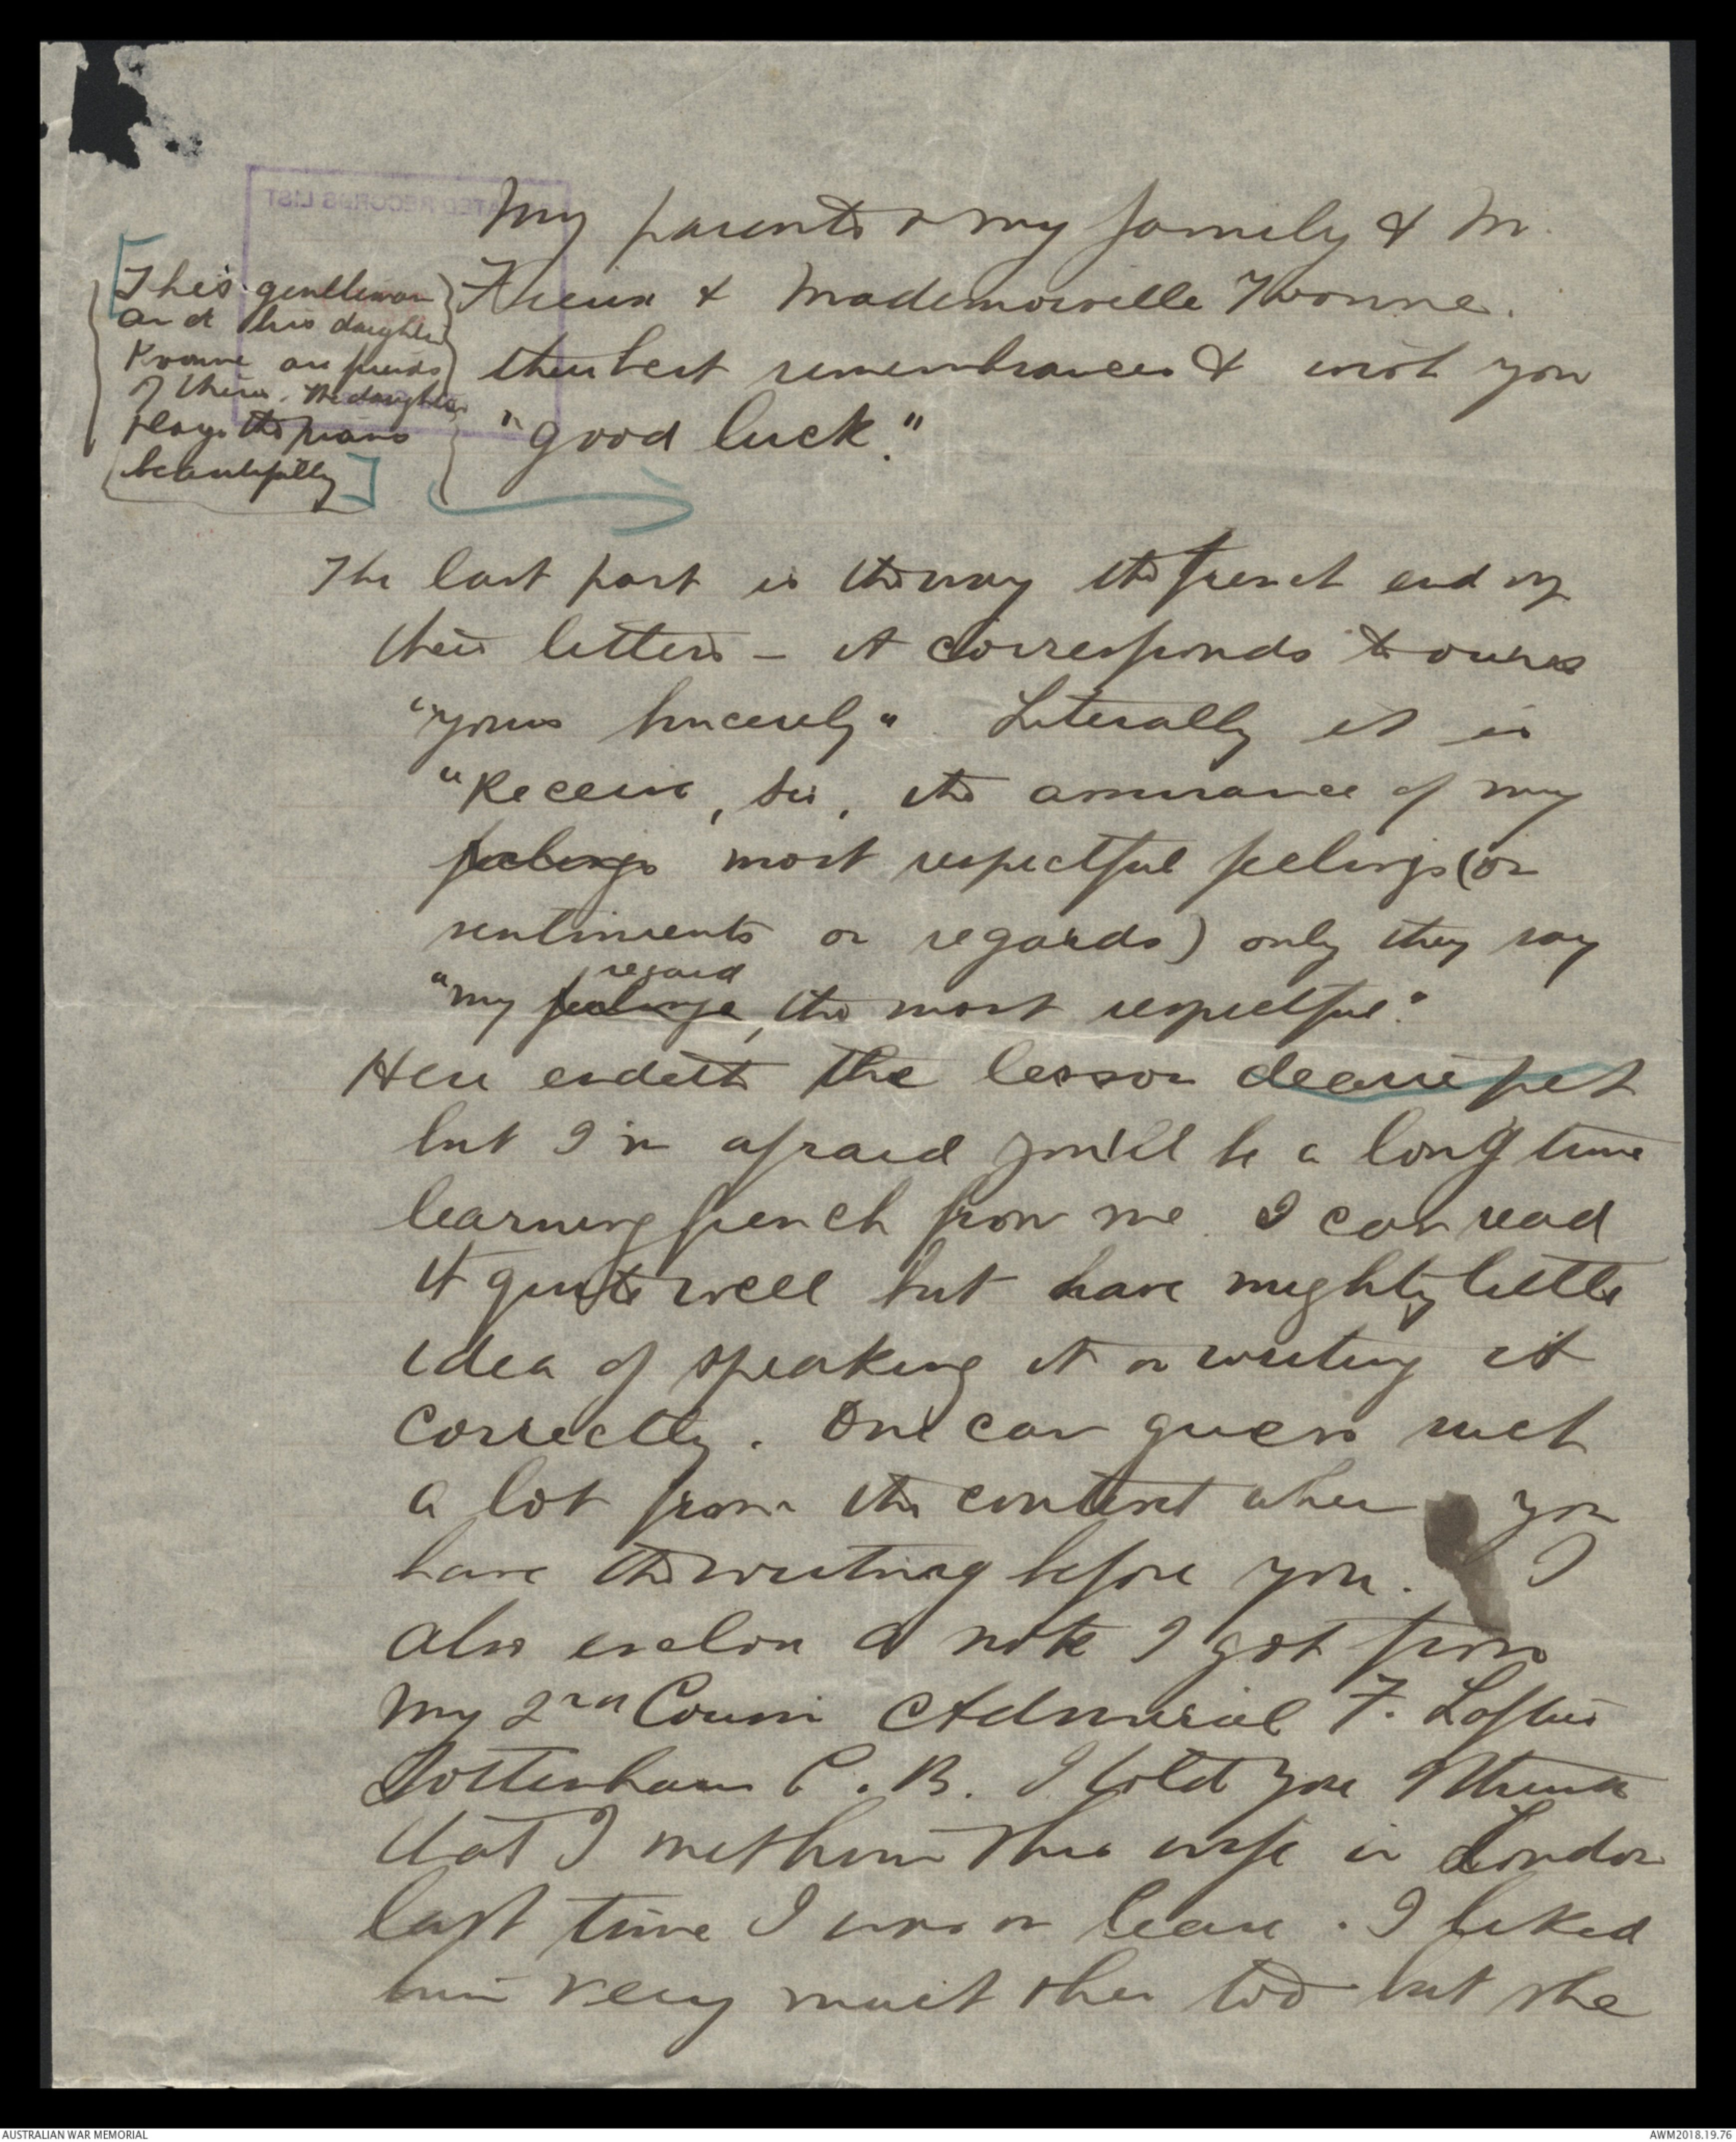 My parents & my family & M.
Frieux & Mademoiselle Yvonne.
their best remembrances & wish you
"good luck."
[This gentleman
and his daughter
Yvonne are friends
of theirs. The daughter
plays the piano
beautifully]
The last part is the way the french end up
their letters - it corresponds to ours
"yours sincerely" Literally it is
"Receive, Sir, the assurance of my
feelings most respectful feelings (or
sentiments or regards) only they say
regard
"my feelings, the most respectful."
Here endeth the lesson dearie pet
but I'm afraid you'll be a long time
learning french from me. I can read
it quite well but have mighty little
idea of speaking it or writing it
correctly. One can guess such
a lot from the context when you
have the writing before you. I
also enclose a note I got from
my 2nd Cousin Admiral F. Loftus
Tottenham C.B. I told you I think
that I met him & his wife in London
last time I was on leave. I liked
him very much & her too but she
AUSTRALIAN WAR MEMORIAL
AWM2018.19.76